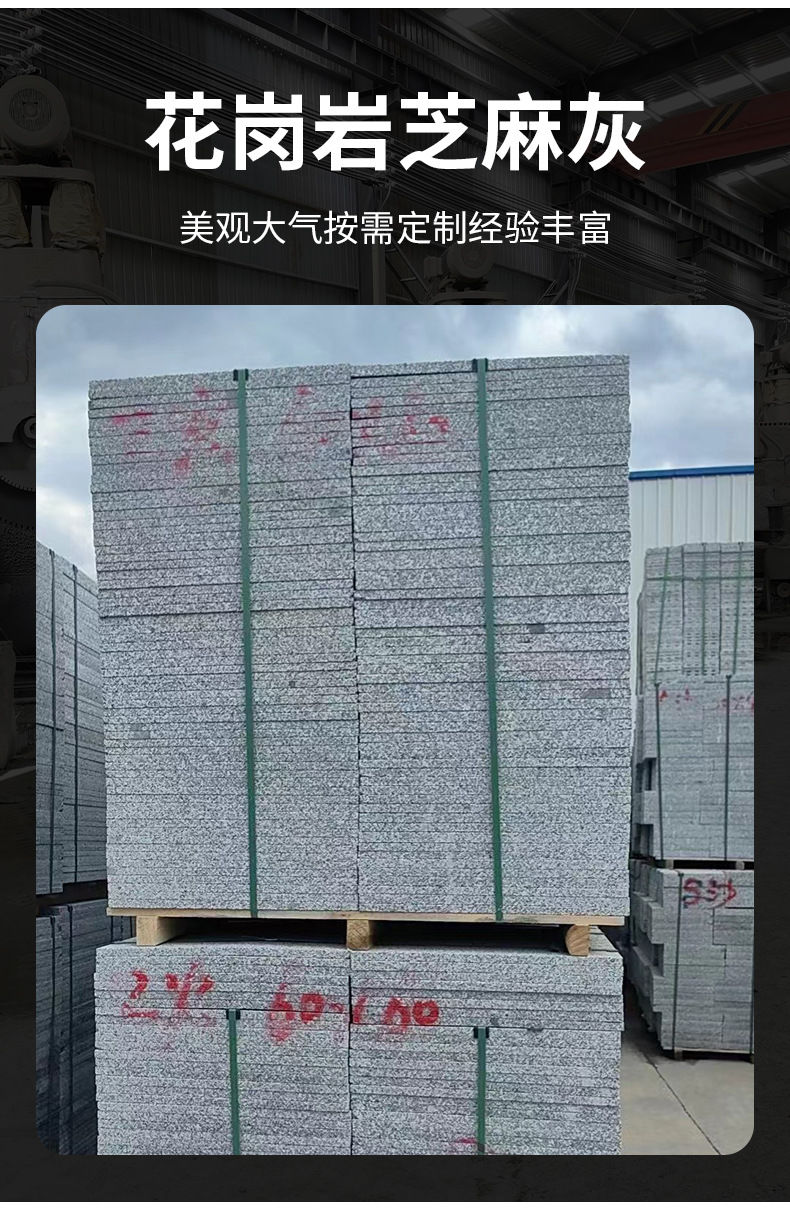 花岗岩芝麻灰
美观大气按需定制经验丰富
60-100